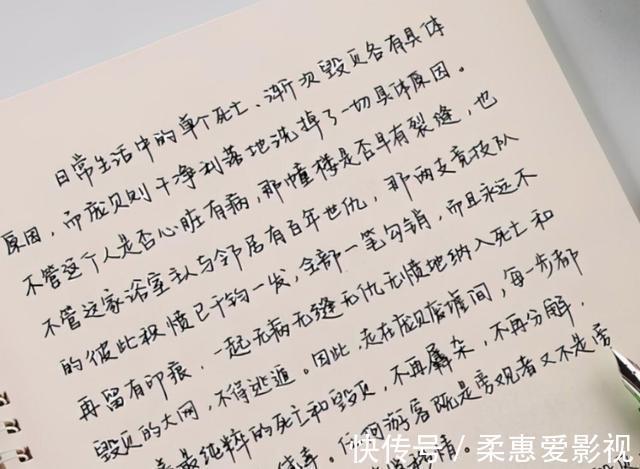 日常生活中的单个死亡、渐次毁灭各有具体
原因，而庞贝则干净利落地洗掉了一切具体原因。
不管这个人是否心脏有病，那幢楼是否早有裂缝，也
不管这家浴室主人与邻居有百年世仇，那两支竞技队
的彼此积愤已千钧一发，全部一笔勾销，而且永远不
再留有印痕，一起无病无缝无仇无愤地纳入死亡和
毁灭的大网，不得逃遁。因此，走在庞贝废墟间，每一步都
是最纯粹的死亡和毁灭，不再羼杂，不再分解，
任何游客既是旁观者又不是旁
快传号／柔惠爱影视